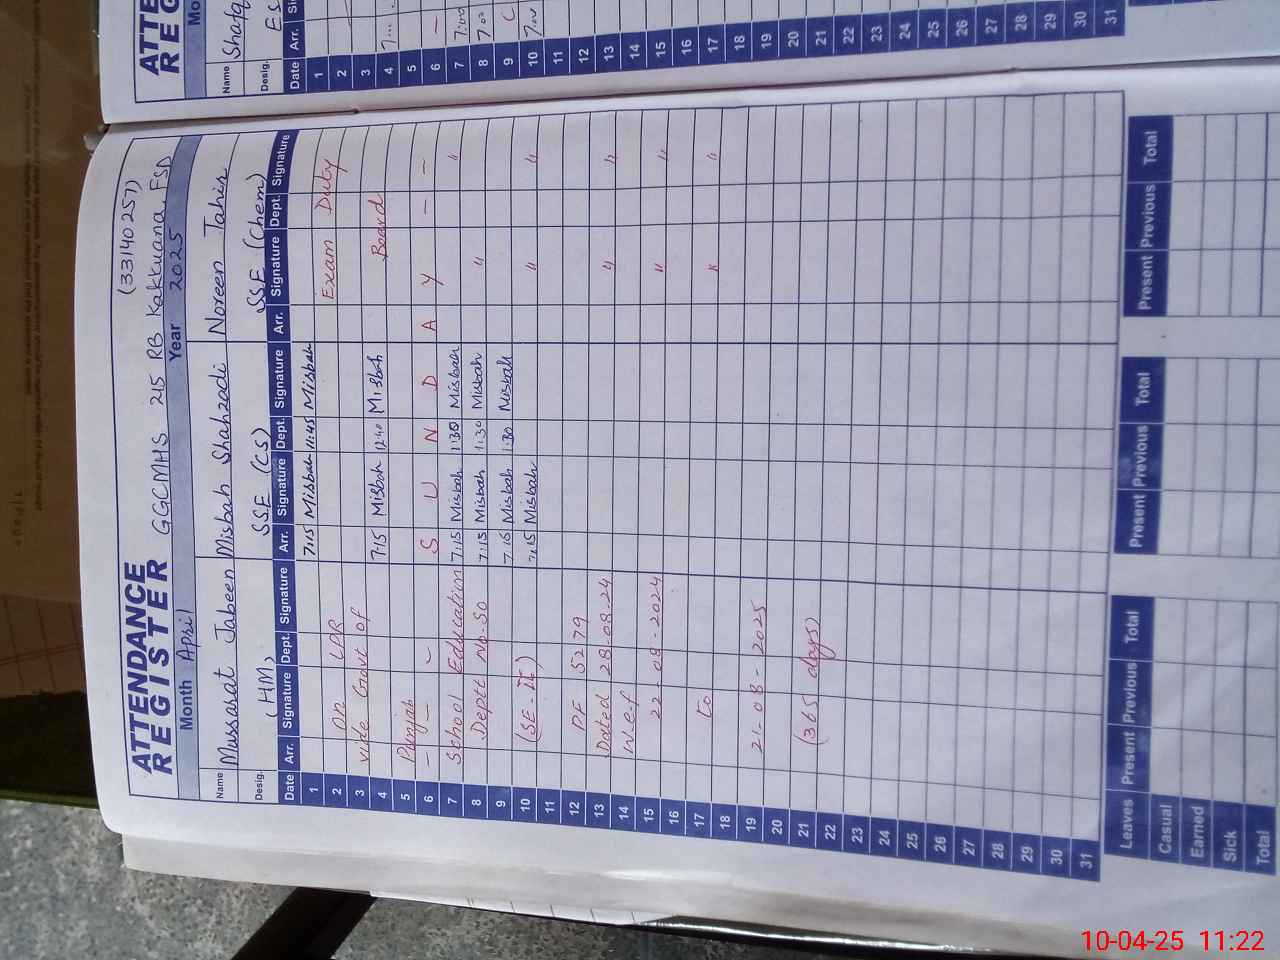 ATTENDANCE
REGISTER
(33140257)
GGCMHS 215 RB Kakkuana, FSD
Month April Year 2025
Name Mussarat Jabeen Misbah Shahzadi Noreen Tahir
Desig. (HM) SSE (CS) SSE (Chem)
Date Arr. Signature Dept. Signature Arr. Signature Dept. Signature Arr. Signature Dept. Signature
1 7:15 Misbah 11:45 Misbah
2 On LPR Exam Duty
3 vide Govt of
4 7:15 Misbah 12:40 Misbah Board
5 Punjab
6 — — — S U N D A Y — —
7 School Education 7:15 Misbah 1:30 Misbah "
8 Deptt No. SO 7:15 Misbah 1:30 Misbah "
9 7:15 Misbah 1:30 Misbah
10 (SE-II) 7:15 Misbah " "
11
12 PF 5279
13 Dated 28-08-24 " "
14 w.e.f
15 22-08-2024 " "
16
17 to " "
18
19 21-08-2025
20
21 (365 days)
22
23
24
25
26
27
28
29
30
31
Leaves Present Previous Total Present Previous Total Present Previous Total
Casual
Earned
Sick
Total
ATTE
REG
Mo
Name Shafq
Desig. ES
Date Arr. Si
1
2
3
4 7:00
5
6 —
7 7:00
8 7:00
9 C
10 7:00
11
12
13
14
15
16
17
18
19
20
21
22
23
24
25
26
27
28
29
30
31
10-04-25 11:22